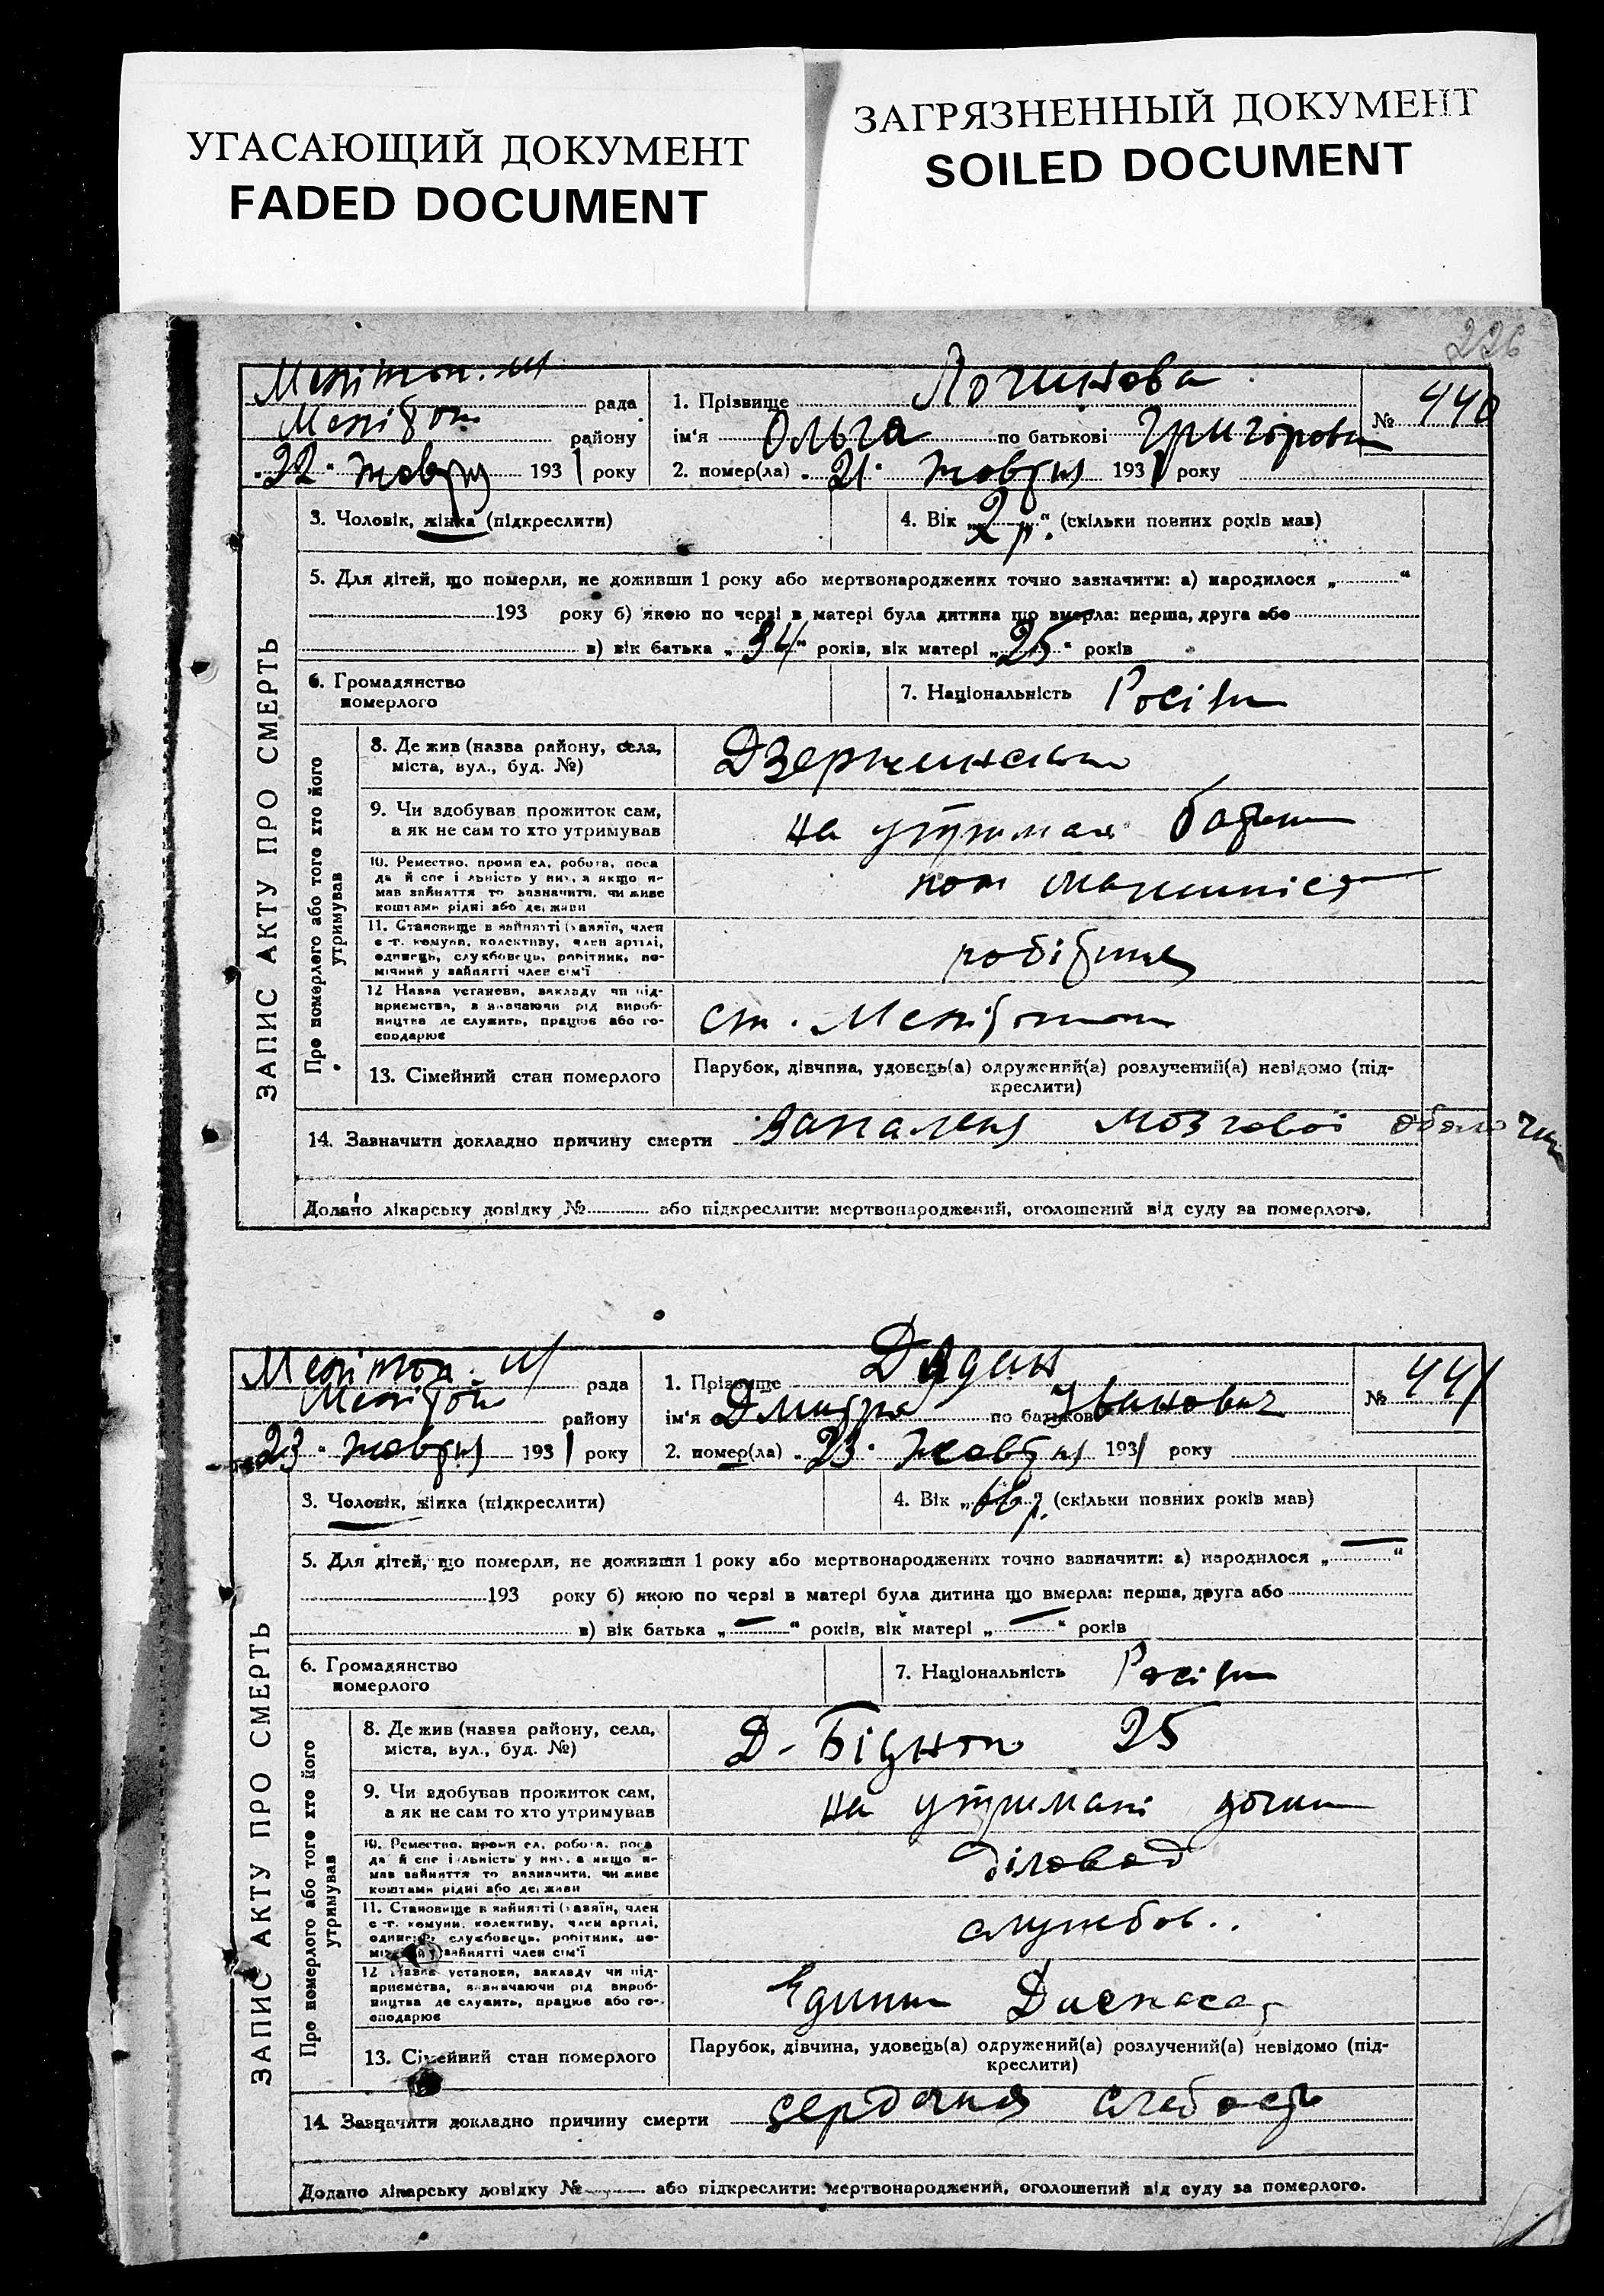 УГАСАЮЩИЙ ДОКУМЕНТ
FADED DOCUMENT
ЗАГРЯЗНЕННЫЙ ДОКУМЕНТ
SOILED DOCUMENT
226
ЗАПИС АКТУ ПРО СМЕРТЬ
рада
району
22 жовтня 1931 року
1. Прізвище Логинова
ім'я Ольга по батькові Григоровн
№ 440
2. помер(ла) 21 жовтня 1931 року
3. Чоловік, жінка (підкреслити)
4. Вік „2 р.“ (скільки повних років мав)
5. Для дітей, що померли, не доживши 1 року або мертвонароджених точно зазначити: а) народилося „ “
193 року б) якою по черзі в матері була дитина що вмерла: перша, друга або
в) вік батька „34“ років, вік матері „25“ років
6. Громадянство
померлого
7. Національність
Про померлого або того хто його
утримував
8. Де жив (назва району, села,
міста, вул., буд. №)
9. Чи здобував прожиток сам,
а як не сам то хто утримував
на утриман
11. Становище в зайнятті (хазяїн, член
с-г. комуни, колективу, член артілі,
одинець, службовець, робітник, по-
мічний у зайнятті член сім'ї
12 Назва установи, закладу чи під-
приємства, зазначаючи рід вироб-
ництва де служить, працює або го-
сподарює
ст.
13. Сімейний стан померлого
Парубок, дівчина, удовець(а) одружений(а) розлучений(а) невідомо (під-
креслити)
14. Зазначити докладно причину смерти запалення мозгової оболочки
Додано лікарську довідку № або підкреслити: мертвонароджений, оголошений від суду за померлого.
ЗАПИС АКТУ ПРО СМЕРТЬ
рада
району
23 жовтня 1931 року
1. Прізвище
ім'я Дмитро по батькові Іванович
№ 441
2. помер(ла) 23 жовтня 1931 року
3. Чоловік, жінка (підкреслити)
4. Вік „66 р.“ (скільки повних років мав)
5. Для дітей, що померли, не доживши 1 року або мертвонароджених точно зазначити: а) народилося „—“
193 року б) якою по черзі в матері була дитина що вмерла: перша, друга або
в) вік батька „—“ років, вік матері „—“ років
6. Громадянство
померлого
7. Національність
Про померлого або того хто його
утримував
8. Де жив (назва району, села,
міста, вул., буд. №)
Д-Бідного 25
9. Чи здобував прожиток сам,
а як не сам то хто утримував
на утримані дочки
діловод
11. Становище в зайнятті (хазяїн, член
с-г. комуни, колективу, член артілі,
одинець, службовець, робітник, по-
мічний у зайнятті член сім'ї
службов..
12 Назва установи, закладу чи під-
приємства, зазначаючи рід вироб-
ництва де служить, працює або го-
сподарює
13. Сімейний стан померлого
Парубок, дівчина, удовець(а) одружений(а) розлучений(а) невідомо (під-
креслити)
14. Зазначити докладно причину смерти сердочна слабость
Додано лікарську довідку № або підкреслити: мертвонароджений, оголошений від суду за померлого.